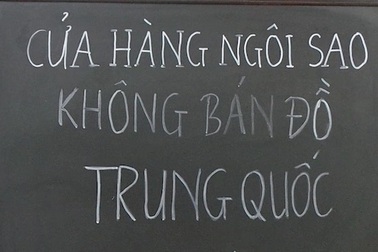 CỬA HÀNG NGÔI SAO
KHÔNG BÁN ĐỒ
TRUNG QUỐC